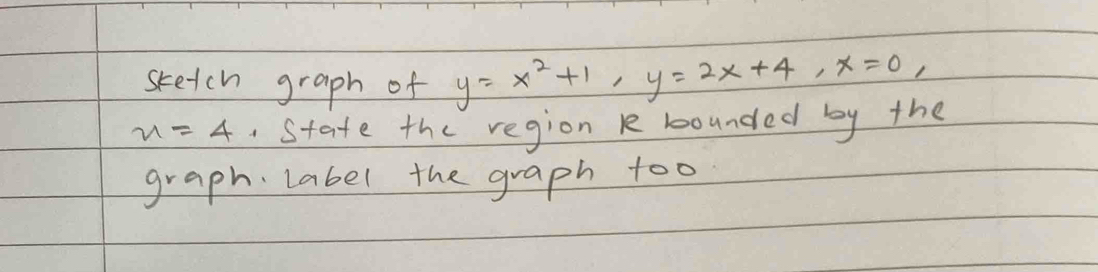 Sketch graph of y = x² + 1 , y = 2x + 4 , x = 0 ,
x = 4 . State the region R bounded by the
graph. Label the graph too.